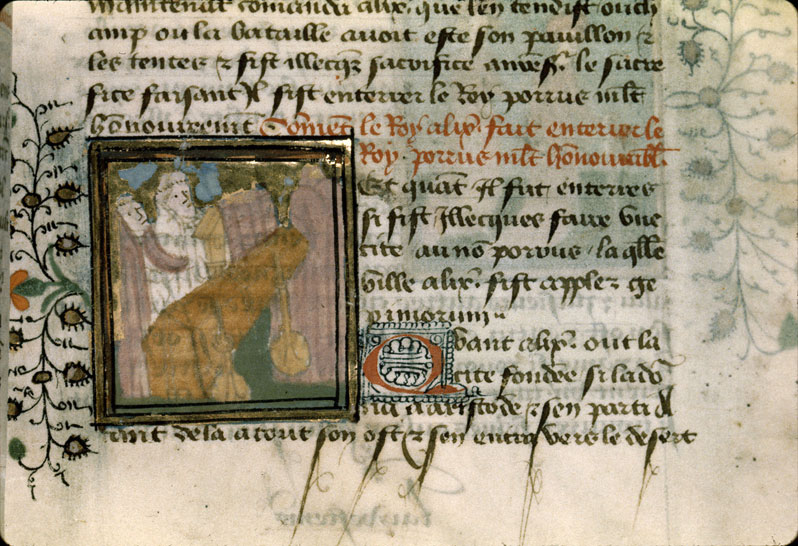 maintenāt comanda alix̄. que len tendist ou ch
amp ou la bataille auoit este son pauillon &
les tentes & fist illecq̄z sacrifice auvesq̄. le sacre
fice faisant Il fist enterrer le Roy porrus mlt̄
honnourēment Comēt le Roy alix̄. fait enterrer le
Roy porrus mlt̄ honnourābl
Et quāt Il fut enterres
si fist Illecques faire vne
cite au nō porrus. la qlle
ville alix̄. fist appler ge
piniorum
Quant alix̄. out la
cite fondee si la dō
na a aristode & sen parti &
vint de la a tout son ost & sen entra vers le desert